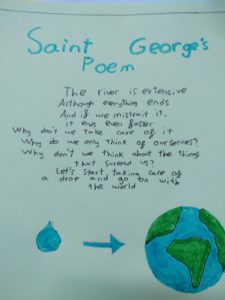 Saint George's
Poem
The river is extensive
Arthough everything ends
And if we mistrait it,
it ends even faster
Why don't we take care of it
Why do we only think of ourselves?
Why don't we think about the things
that surround us?
Let's start taking care of
a drop and go on with
the world